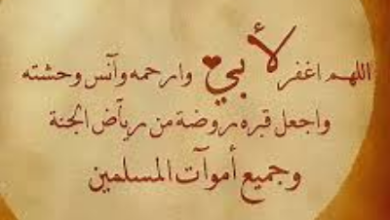 اللهم اغفر لأبي وارحمه وآنس وحشته
واجعل قبره روضة من رياض الجنة
وجميع أموآت المسلمين